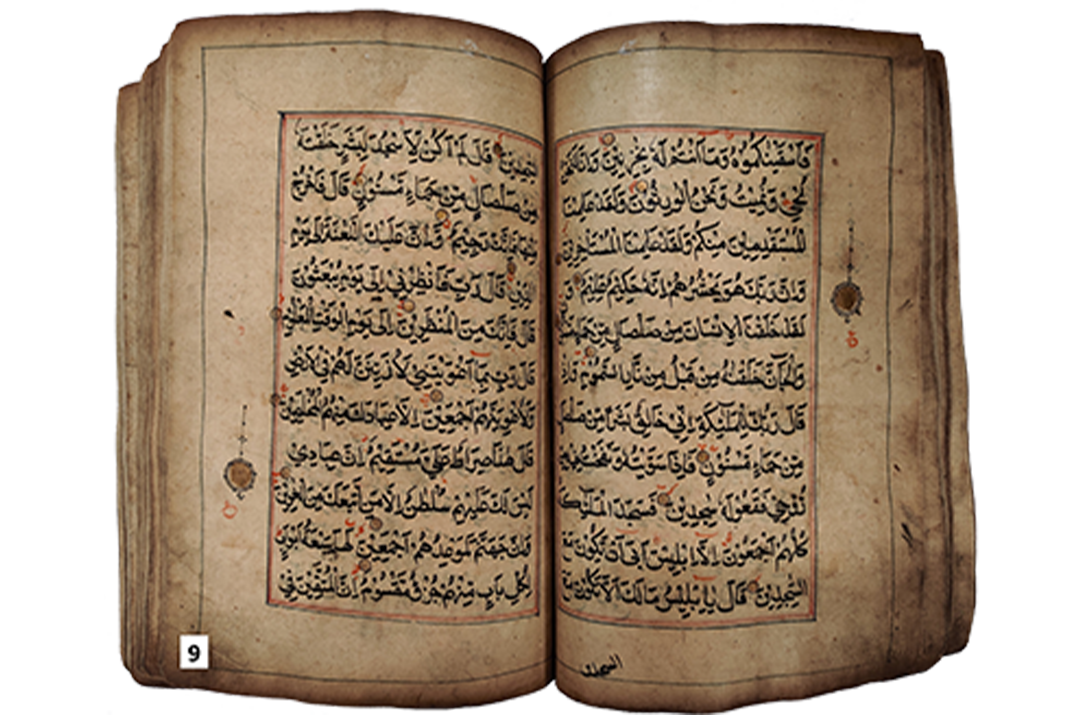 فَاَسْقَيْنٰكُمُوْهُ وَمَا اَنْتُمْ لَهٗ بِخٰزِنِيْنَ وَاِنَّا لَنَحْنُ
نُحْيٖ وَنُمِيْتُ وَنَحْنُ الْوٰرِثُوْنَ وَلَقَدْ عَلِمْنَا
الْمُسْتَقْدِمِيْنَ مِنْكُمْ وَلَقَدْ عَلِمْنَا الْمُسْتَاْخِرِيْنَ
وَاِنَّ رَبَّكَ هُوَ يَحْشُرُهُمْ اِنَّهٗ حَكِيْمٌ عَلِيْمٌ وَ
لَقَدْ خَلَقْنَا الْاِنْسَانَ مِنْ صَلْصَالٍ مِّنْ حَمَاٍ
وَالْجَآنَّ خَلَقْنٰهُ مِنْ قَبْلُ مِنْ نَّارِ السَّمُوْمِ وَاِذْ
قَالَ رَبُّكَ لِلْمَلٰٓئِكَةِ اِنِّيْ خَالِقٌ بَشَرًا مِّنْ صَلْصَالٍ
مِّنْ حَمَاٍ مَّسْنُوْنٍ فَاِذَا سَوَّيْتُهٗ وَنَفَخْتُ فِيْهِ مِنْ
رُّوْحِيْ فَقَعُوْا لَهٗ سٰجِدِيْنَ فَسَجَدَ الْمَلٰٓئِكَةُ
كُلُّهُمْ اَجْمَعُوْنَ اِلَّآ اِبْلِيْسَ اَبٰٓى اَنْ يَّكُوْنَ مَعَ
السّٰجِدِيْنَ قَالَ يٰٓاِبْلِيْسُ مَالَكَ اَلَّا تَكُوْنَ مَعَ
السّٰجِدِيْنَ
السّٰجِدِيْنَ قَالَ لَمْ اَكُنْ لِّاَسْجُدَ لِبَشَرٍ خَلَقْتَهٗ
مِنْ صَلْصَالٍ مِّنْ حَمَاٍ مَّسْنُوْنٍ قَالَ فَاخْرُجْ
مِنْهَا فَاِنَّكَ رَجِيْمٌ وَاِنَّ عَلَيْكَ اللَّعْنَةَ اِلٰى يَوْمِ
الدِّيْنِ قَالَ رَبِّ فَاَنْظِرْنِيْٓ اِلٰى يَوْمِ يُبْعَثُوْنَ
قَالَ فَاِنَّكَ مِنَ الْمُنْظَرِيْنَ اِلٰى يَوْمِ الْوَقْتِ الْمَعْلُوْمِ
قَالَ رَبِّ بِمَآ اَغْوَيْتَنِيْ لَاُزَيِّنَنَّ لَهُمْ فِى الْاَرْضِ
وَلَاُغْوِيَنَّهُمْ اَجْمَعِيْنَ اِلَّا عِبَادَكَ مِنْهُمُ الْمُخْلَصِيْنَ
قَالَ هٰذَا صِرَاطٌ عَلَيَّ مُسْتَقِيْمٌ اِنَّ عِبَادِيْ
لَيْسَ لَكَ عَلَيْهِمْ سُلْطٰنٌ اِلَّا مَنِ اتَّبَعَكَ مِنَ الْغٰوِيْنَ
وَاِنَّ جَهَنَّمَ لَمَوْعِدُهُمْ اَجْمَعِيْنَ لَهَا سَبْعَةُ اَبْوَابٍ
لِكُلِّ بَابٍ مِّنْهُمْ جُزْءٌ مَّقْسُوْمٌ اِنَّ الْمُتَّقِيْنَ فِيْ
9